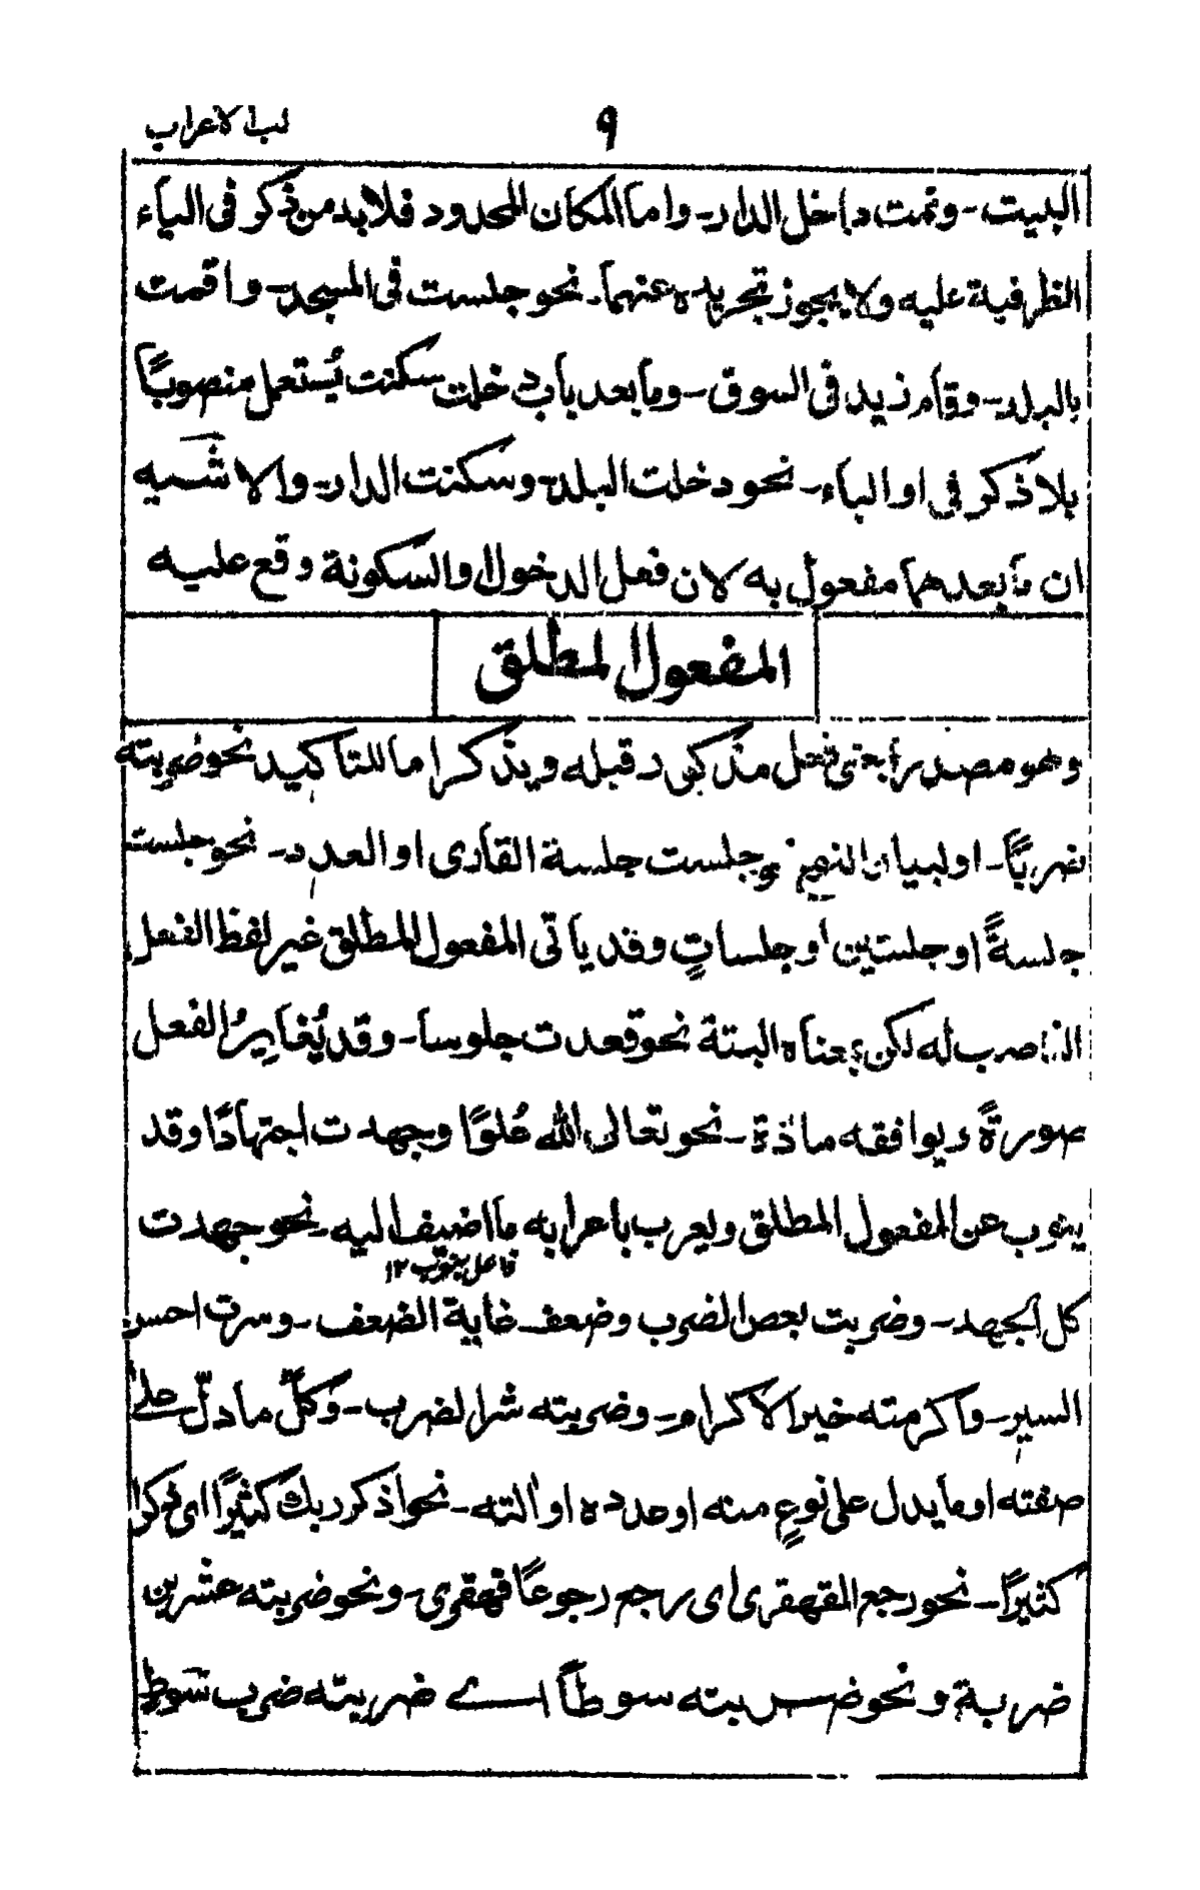 لب الاعراب
٩
البيت - ونمت داخل الدار - واما المكان المحدود فلابد من ذكر فى الباء
الظرفية عليه ولا يجوز تجريده عنهما - نحو جلست فى المسجد - واقمت
بالبلد - وقام زيد فى السوق - وما بعد باب دخلت سكنت يُستعمل منصوبًا
بلا ذكر فى او الباء - نحو دخلت البلد - وسكنت الدار - والاشبه
ان ما بعدهما مفعول به لان فعل الدخول والسكونة وقع عليه
المفعول المطلق
وهو مصدر بمعنى فعل مذكور قبله ويذكر اما للتاكيد نحو ضربته
ضربًا - او لبيان النوع نحو جلست جلسة القارى او العدد - نحو جلست
جلسةً او جلستين او جلساتٍ وقد ياتى المفعول المطلق غير لفظ الفعل
الناصب له لكن بمعناه البتة نحو قعدت جلوسا - وقد يُغايِرُ الفعل
صورةً ويوافقه مادة - نحو تعالى الله عُلوًّا وجهدت اجتهادًا وقد
ينوب عن المفعول المطلق ويعرب باعرابه ما اضيف اليه - نحو جهدت
فاعل ينوب ١٢
كل الجهد - وضربت بعض الضرب وضعف غاية الضعف - وسرت احسن
السير - واكرمته خير الاكرام - وضربته شر الضرب - وكلُّ ما دلّ على
صفته او ما يدل على نوعٍ منه او عدده او آلته - نحو اذكر ربك كثيرًا اى ذكرا
كثيرًا - نحو رجع القهقرى اى رجع رجوعًا قهقرى - ونحو ضربته عشرين
ضربة ونحو ضربته سوطًا اے ضربته ضرب سوطٍ